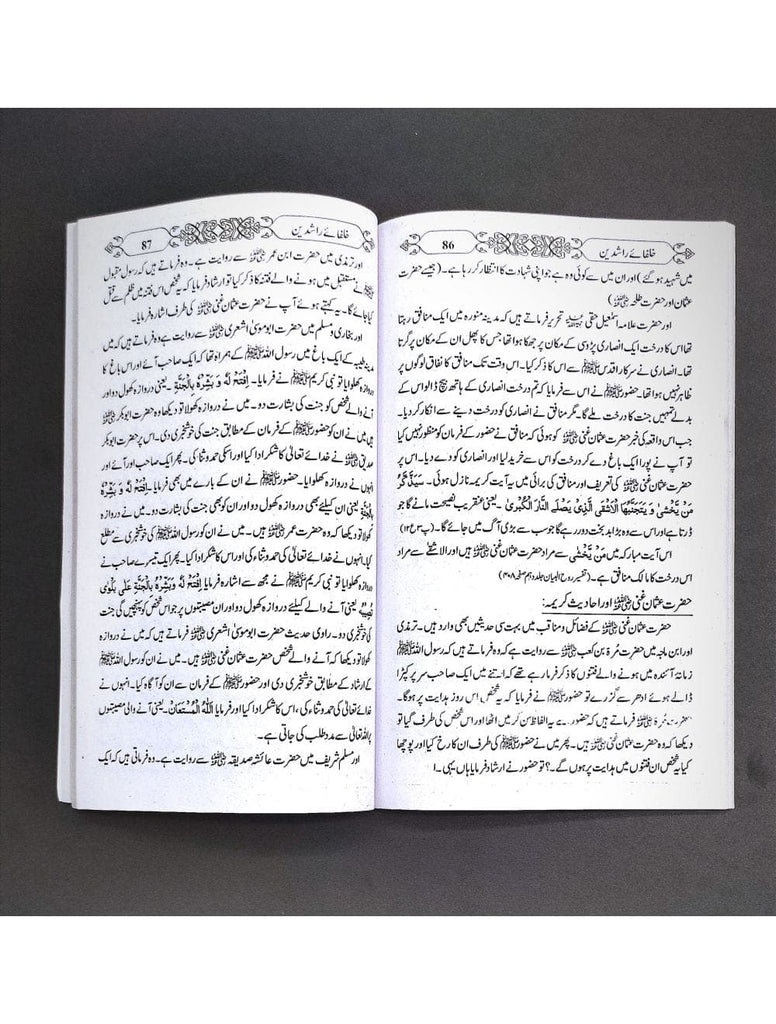 خلفائے راشدین
86
میں شہید ہو گئے) اور ان میں سے کوئی وہ ہے جو اپنی شہادت کا انتظار کر رہا ہے۔ (جیسے حضرت
عثمان اور حضرت طلحہ ﷜)
اور حضرت علامہ اسمٰعیل حقی تحریر فرماتے ہیں کہ مدینہ منورہ میں ایک منافق رہتا
تھا اس کا درخت ایک انصاری پڑوسی کے مکان پر جھکا ہوا تھا جس کا پھل ان کے مکان پر گرتا
تھا۔ انصاری نے سرکار اقدس ﷺ سے اس کا ذکر کیا۔ اس وقت تک منافق کا نفاق لوگوں پر
ظاہر نہیں ہوا تھا۔ حضور ﷺ نے اس سے فرمایا کہ تم درخت انصاری کے ہاتھ بیچ ڈالو اس کے
بدلے تمہیں جنت کا درخت ملے گا۔ مگر منافق نے انصاری کو درخت دینے سے انکار کر دیا۔
جب اس واقعہ کی خبر حضرت عثمان غنی ﷜ کو ہوئی کہ منافق نے حضور کے فرمان کو منظور نہیں کیا
تو آپ نے پورا ایک باغ دے کر درخت کو اس سے خرید لیا اور انصاری کو دے دیا۔ اس پر
حضرت عثمان غنی ﷜ کی تعریف اور منافق کی برائی میں یہ آیت کریمہ نازل ہوئی۔ سَيَذَّكَّرُ
مَنْ يَّخْشٰى وَ يَتَجَنَّبُهَا الْاَشْقَى الَّذِيْ يَصْلَى النَّارَ الْكُبْرٰى۔ یعنی عنقریب نصیحت مانے گا جو
ڈرتا ہے اور اس سے وہ بڑا بد بخت دور رہے گا جو سب سے بڑی آگ میں جائے گا۔ (پ۳۰ع۱۲)
اس آیت مبارکہ میں مَنْ يَّخْشٰى سے مراد حضرت عثمان غنی ﷜ ہیں اور الاشقٰے سے مراد
اس درخت کا مالک منافق ہے۔ (تفسیر روح البیان جلد دہم صفحہ ۴۰۸)
حضرت عثمان غنی ﷜ اور احادیث کریمہ:
حضرت عثمان غنی ﷜ کے فضائل و مناقب میں بہت سی حدیثیں بھی وارد ہیں۔ ترمذی
اور ابن ماجہ میں حضرت مُرۃ بن کعب ﷜ سے روایت ہے وہ فرماتے ہیں کہ رسول اللہ ﷺ
زمانۂ آئندہ میں ہونے والے فتنوں کا ذکر فرما رہے تھے کہ اتنے میں ایک صاحب سر پر کپڑا
ڈالے ہوئے ادھر سے گزرے تو حضور ﷺ نے فرمایا کہ یہ شخص اس روز ہدایت پر ہوگا۔
حضرت مُرۃ ﷜ فرماتے ہیں کہ حضور سے یہ الفاظ سن کر میں اٹھا اور اس شخص کی طرف گیا تو
دیکھا کہ وہ حضرت عثمان غنی ﷜ ہیں۔ پھر میں نے حضور ﷺ کی طرف ان کا رخ کیا اور پوچھا
کیا یہ شخص ان فتنوں میں ہدایت پر ہوں گے۔؟ تو حضور نے ارشاد فرمایا ہاں یہی۔
خلفائے راشدین
87
اور ترمذی میں حضرت ابن عمر ﷜ سے روایت ہے۔ وہ فرماتے ہیں کہ رسول مقبول
ﷺ نے مستقبل میں ہونے والے فتنہ کا ذکر کیا تو ارشاد فرمایا کہ یہ شخص اس فتنہ میں ظلم سے قتل
کیا جائے گا۔ یہ کہتے ہوئے آپ نے حضرت عثمان غنی ﷜ کی طرف اشارہ فرمایا۔
اور بخاری و مسلم میں حضرت ابو موسیٰ اشعری ﷜ سے روایت ہے وہ فرماتے ہیں کہ میں
مدینہ طیبہ کے ایک باغ میں رسول اللہ ﷺ کے ہمراہ تھا کہ ایک صاحب آئے اور اس باغ کا
دروازہ کھلوایا تو نبی کریم ﷺ نے فرمایا۔ اِفْتَحْ لَهٗ وَ بَشِّرْهُ بِالْجَنَّةِ۔ یعنی دروازہ کھول دو اور
آنے والے شخص کو جنت کی بشارت دو۔ میں نے دروازہ کھولا تو دیکھا وہ حضرت ابوبکر ﷜
ہیں میں نے ان کو حضور ﷺ کے فرمان کے مطابق جنت کی خوشخبری دی۔ اس پر حضرت ابوبکر
صدیق ﷜ نے خدائے تعالیٰ کا شکر ادا کیا اور اس کی حمد و ثنا کی۔ پھر ایک صاحب اور آئے اور
دروازہ کھلوایا۔ حضور ﷺ نے ان کے بارے میں بھی فرمایا۔ اِفْتَحْ لَهٗ وَ بَشِّرْهُ
بِالْجَنَّةِ یعنی ان کیلئے بھی دروازہ کھول دو اور ان کو بھی جنت کی بشارت دو۔ میں نے دروازہ
کھولا تو دیکھا کہ وہ حضرت عمر ﷜ ہیں۔ میں نے ان کو رسول اللہ ﷺ کی خوشخبری سے مطلع
کیا۔ انہوں نے خدائے تعالیٰ کی حمد و ثناء کی اور اس کا شکر ادا کیا۔ پھر ایک تیسرے صاحب نے
دروازہ کھلوایا تو نبی کریم ﷺ نے مجھ سے اشارہ فرمایا اِفْتَحْ لَهٗ وَبَشِّرْهُ بِالْجَنَّةِ عَلٰى بَلْوٰى
تُصِيْبُهٗ یعنی آنے والے کیلئے دروازہ کھول دو اور ان مصیبتوں پر جو اس شخص کو پہنچیں گی جنت
کی خوشخبری دو۔ راوی حدیث حضرت ابو موسیٰ اشعری ﷜ فرماتے ہیں کہ میں نے دروازہ
کھولا تو دیکھا کہ آنے والے شخص حضرت عثمان غنی ﷜ ہیں۔ میں نے ان کو رسول اللہ ﷺ
کے ارشاد کے مطابق خوشخبری دی اور حضور ﷺ کے فرمان سے ان کو آگاہ کیا۔ انہوں نے
خدائے تعالیٰ کی حمد و ثناء کی، اس کا شکر ادا کیا اور فرمایا اَللّٰهُ الْمُسْتَعَانُ۔ یعنی آنے والی مصیبتوں
پر اللہ تعالیٰ سے مدد طلب کی جاتی ہے۔
اور مسلم شریف میں حضرت عائشہ صدیقہ ﷞ سے روایت ہے۔ وہ فرماتی ہیں کہ ایک